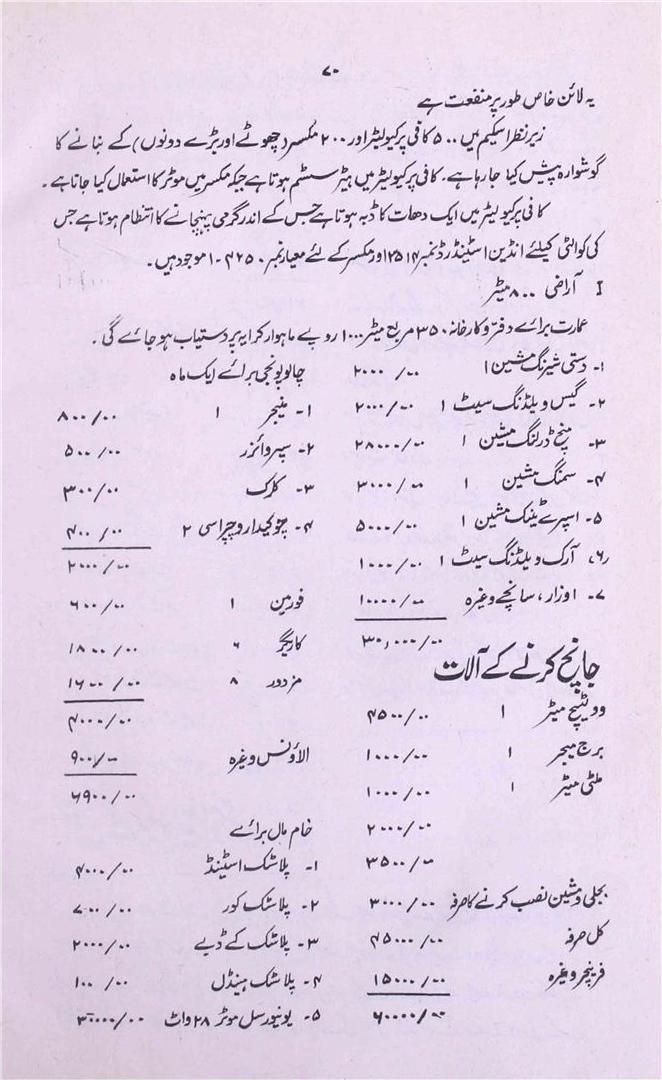 ۷۰
یہ لائن خاص طور پر منفعت ہے
زیر نظر اسکیم میں ۵۰۰ کافی پرکیولیٹر اور ۲۰۰ مکسر (چھوٹے اور بڑے دونوں) کے بنانے کا
گوشوارہ پیش کیا جا رہا ہے۔ کافی پرکیولیٹر میں ہیٹر سسٹم ہوتا ہے جبکہ مکسر میں موٹر کا استعمال کیا جاتا ہے۔
کافی پرکیولیٹر میں ایک دھات کا ڈبہ ہوتا ہے جس کے اندر گرمی پہنچانے کا انتظام ہوتا ہے جس
کی کوالٹی کیلئے انڈین اسٹینڈرڈ نمبر ۳۵۱۴ اور مکسر کے لئے معیار نمبر ۴۲۵۰-۱ موجود ہیں۔
I آراضی ۸۰۰ میٹر
عمارت برائے دفتر و کارخانہ ۳۵۰ مربع میٹر ۱۰۰۰ روپے ماہوار کرایہ پر دستیاب ہو جائے گی۔
۱- دستی شیرنگ مشین ۱ ۲۰۰۰/۰۰
۲- گیس ویلڈنگ سیٹ ۱ ۲۰۰۰/۰۰
۳- پنچ ڈرلنگ مشین ۱ ۲۸۰۰۰/۰۰
۴- سمنگ مشین ۱ ۳۰۰۰/۰۰
۵- اسپرے ٹینک مشین ۱ ۵۰۰۰/۰۰
۶، آرک ویلڈنگ سیٹ ۱ ۱۰۰۰/۰۰
۷- اوزار، سانچے وغیرہ ۱۰۰۰۰/۰۰
۳۰،۰۰۰/۰۰
جانچ کرنے کے آلات
وولٹیج میٹر ۱ ۴۵۰۰/۰۰
برج میجر ۱ ۱۰۰۰/۰۰
ملٹی میٹر ۱ ۱۰۰۰/۰۰
۲۰۰۰/۰۰
۳۵۰۰/۰۰
بجلی و مشین نصب کرنے کا صرفہ ۳۰۰۰/۰۰
کل صرفہ ۴۵۰۰۰/۰۰
فرنیچر وغیرہ ۱۵۰۰۰/۰۰
۶۰۰۰۰/۰۰
چالو پونجی برائے ایک ماہ
۱- منیجر ۱ ۸۰۰/۰۰
۲- سپروائزر ۵۰۰/۰۰
۳- کلرک ۳۰۰/۰۰
۴- چوکیدار و چپراسی ۲ ۴۰۰/۰۰
۲۰۰۰/۰۰
فورمین ۱ ۶۰۰/۰۰
کاریگر ۶ ۱۸۰۰/۰۰
مزدور ۸ ۱۶۰۰/۰۰
۴۰۰۰/۰۰
الاؤنس وغیرہ ۹۰۰/۰۰
۶۹۰۰/۰۰
خام مال برائے
۱- پلاسٹک اسٹینڈ ۴۰۰۰/۰۰
۲- پلاسٹک کور ۷۰۰/۰۰
۳- پلاسٹک کے ڈبے ۲۰۰۰/۰۰
۴- پلاسٹک ہینڈل ۱۰۰/۰۰
۵- یونیورسل موٹر ۲۸ واٹ ۳۰۰۰۰/۰۰